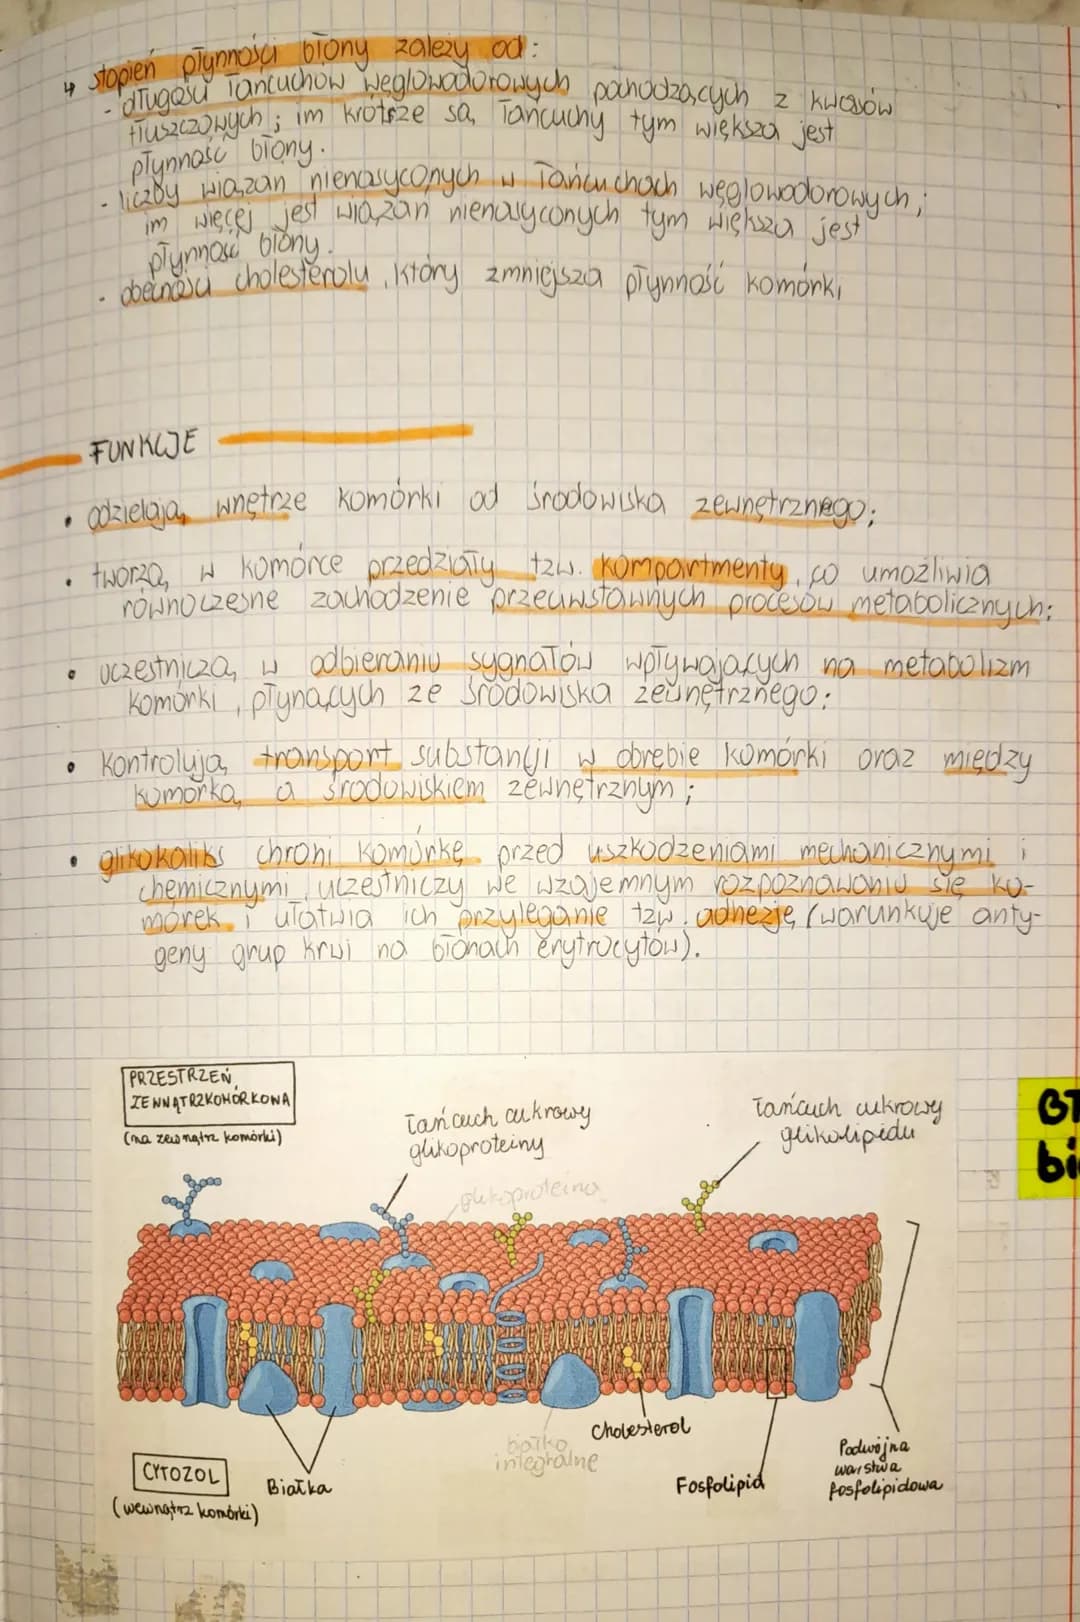 ↳ stopień płynności błony zależy od:
- długości łańcuchów węglowodorowych pochodzących z kwasów
tłuszczowych; im krótsze są łańcuchy tym większa jest
płynność błony.
- liczby wiązań nienasyconych w łańcuchach węglowodorowych;
im więcej jest wiązań nienasyconych tym większa jest
płynność błony.
- obecności cholesterolu, który zmniejsza płynność komórki
FUNKCJE
• odzielają wnętrze komórki od środowiska zewnętrznego;
• tworzą w komórce przedziały tzw. kompartmenty, co umożliwia
równoczesne zachodzenie przeciwstawnych procesów metabolicznych;
• uczestniczą w odbieraniu sygnałów wpływających na metabolizm
komórki, płynących ze środowiska zewnętrznego;
• kontrolują transport substancji w obrębie komórki oraz między
komórką a środowiskiem zewnętrznym;
• glikokaliks chroni komórkę przed uszkodzeniami mechanicznymi i
chemicznymi, uczestniczy we wzajemnym rozpoznawaniu się ko-
mórek i ułatwia ich przyleganie tzw. adhezję (warunkuje anty-
geny grup krwi na błonach erytrocytów).
PRZESTRZEŃ
ZEWNĄTRZKOMÓRKOWA
(na zewnątrz komórki)
łańcuch cukrowy
glikoproteiny
łańcuch cukrowy
glikolipidu
glikoproteina
BŁ
bi
Cholesterol
białko
integralne
Podwójna
warstwa
fosfolipidowa
CYTOZOL
Białka
Fosfolipid
(wewnątrz komórki)